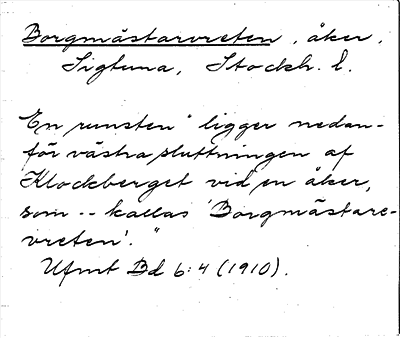 Borgmästarvreten, åker,
Sigtuna, Stockh. l.
En runsten "ligger nedan-
för västra sluttningen af
Klockberget vid en åker,
som -- kallas 'Borgmästare-
vreten'."
Ufmt Bd 6:4 (1910).